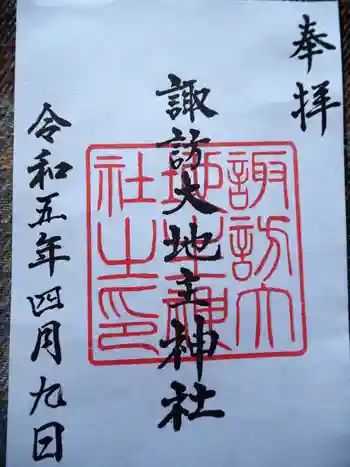 奉拝
諏訪大地主神社
令和五年四月九日
諏訪大
地主神
社之印